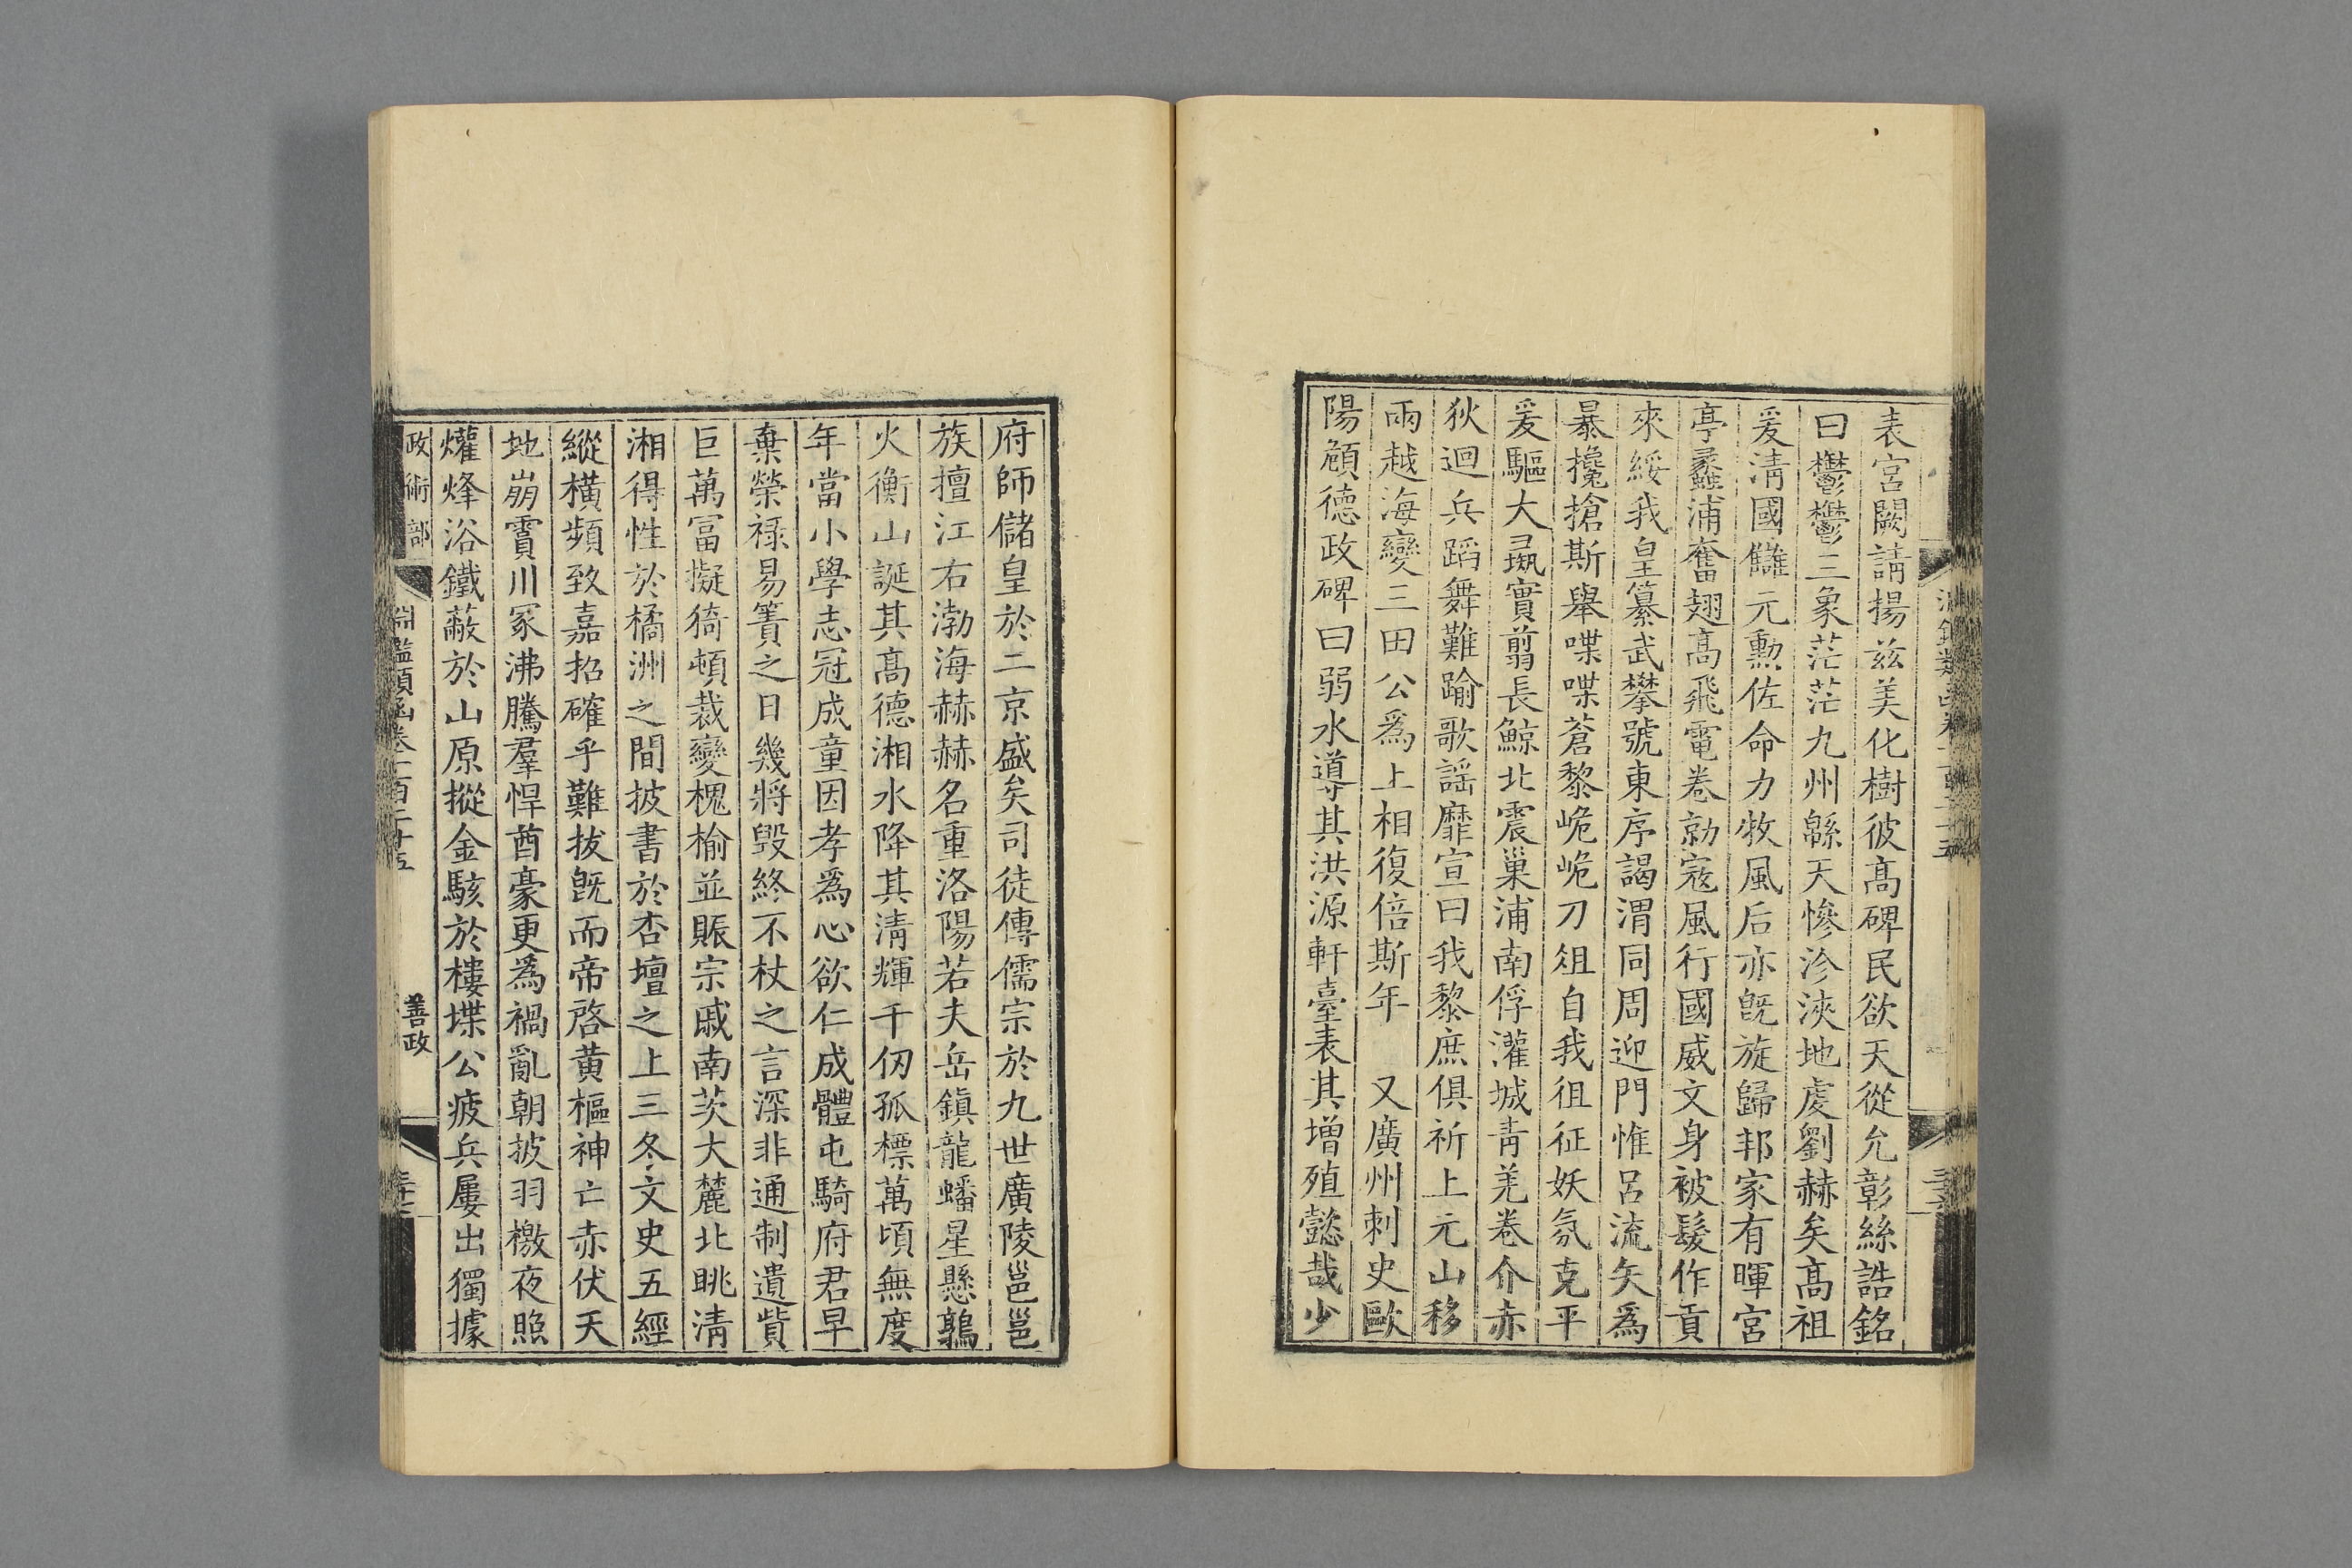 表宮闕請揚兹美化樹彼高碑民欲天從允彰絲誥銘
曰鬱鬱三象茫茫九州緜天慘沴浹地虔劉赫矣高祖
爰清國讎元勳佐命力牧風后亦旣旋歸邦家有暉宮
亭蠡浦奮翅高飛電卷勍宼風行國威文身被髮作貢
來綏我皇纂武攀號東序謁渭同周迎門惟呂流矢爲
暴攙搶斯舉喋喋蒼黎峗峗刀俎自我徂征妖氛克平
爰驅大風實翦長鯨北震巢浦南俘灌城青羌卷介赤
狄迴兵蹈舞難踰歌謡靡宣曰我黎庶俱祈上元山移
雨越海變三田公爲上相復倍斯年　又廣州刺史歐
陽頠德政碑曰弱水導其洪源軒臺表其增殖懿哉少
府師儲皇於二京盛矣司徒傳儒宗於九世廣陵邕邕
族擅江右渤海赫赫名重洛陽若夫岳鎮龍蟠星懸鶉
火衡山誕其高德湘水降其清輝千仭孤標萬頃無度
年當小學志冠成童因孝爲心欲仁成體屯騎府君早
棄榮禄易簀之日幾將毀終不杖之言深非通制遺貲
巨萬冨擬猗頓裁變槐榆並賑宗戚南茨大麓北眺清
湘得性於橘洲之間披書於杏壇之上三冬文史五經
縱横頻致嘉招確乎難拔旣而帝啓黄樞神亡赤伏天
地崩賣川冢沸騰羣悍酋豪更爲禍亂朝披羽檄夜照
爟烽浴鐵蔽於山原摐金駭於樓堞公疲兵屢出獨據
政術部　淵鑑類函卷一百二十五　善政